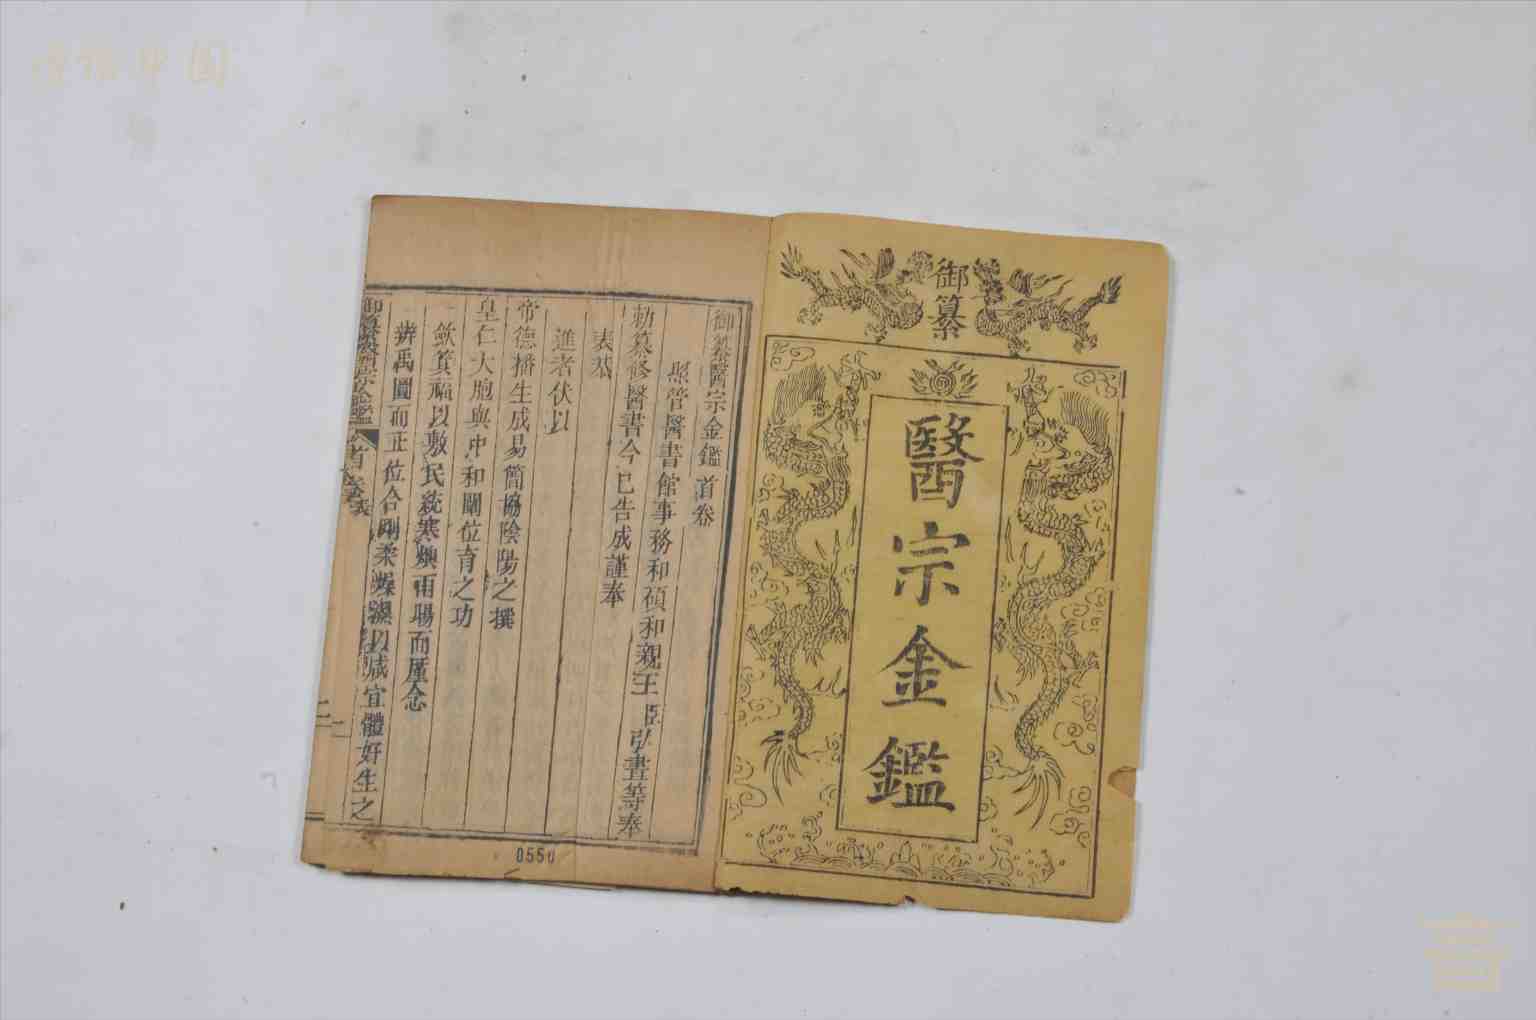 御纂
醫宗金鑑
御纂醫宗金鑑 首卷
照管醫書館事務和碩和親王臣弘晝等奉
勅纂修醫書今已告成謹奉
表恭
進者伏以
帝德播生成易簡協陰陽之撰
皇仁大胞與中和關位育之功
斂箕福以敷民統寒燠雨暘而厪念
辨禹圖而正位合剛柔燥濕以咸宜體好生之
御纂醫宗金鑑
首卷 表
二
二
0550